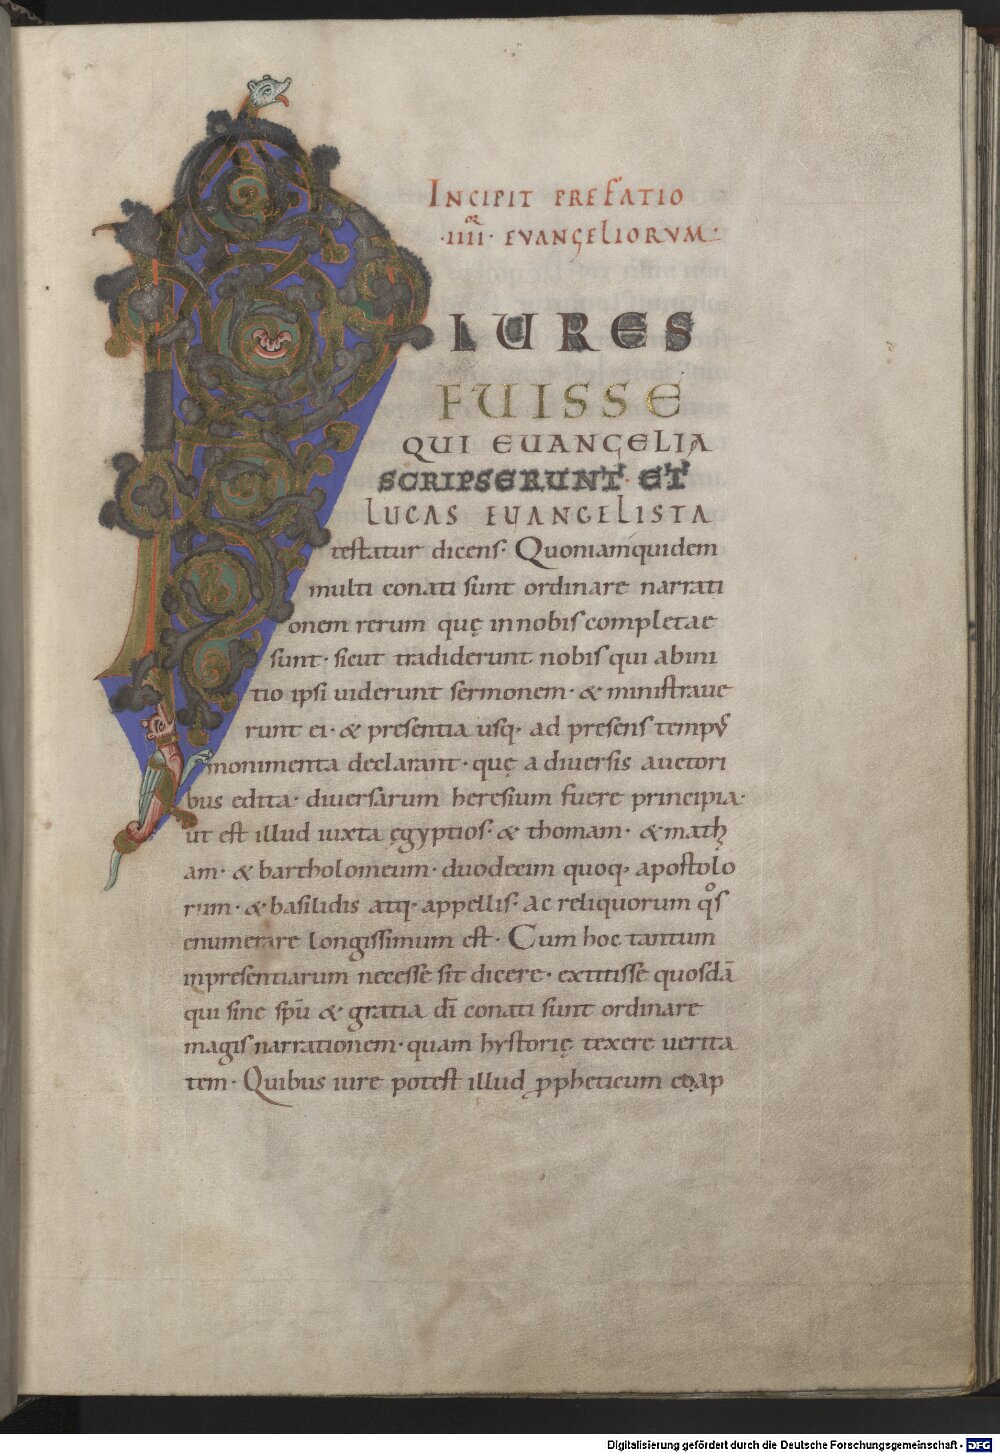 INCIPIT PREFATIO
·IIII·OR EVANGELIORVM:
PLURES
FUISSE
QUI EUANGELIA
SCRIPSERUNT· ET
LUCAS EUANGELISTA
testatur dicens· Quoniamquidem
multi conati sunt ordinare narrati
onem rerum quę innobis completae
sunt· sicut tradiderunt nobis qui abini
tio ipsi uiderunt sermonem· & ministraue
runt ei· & presentia usq· ad presens tempꝰ
monimenta declarant· quę a diuersis auctori
bus edita· diuersarum heresium fuere principia·
ut est illud iuxta ęgyptios· & thomam· & math
am· & bartholomeum· duodecim quoq· apostolo
rum· & basilidis atq· appellis· Ac reliquorum qͦs
enumerare longissimum est· Cum hoc tantum
inpresentiarum necesse sit dicere· extitisse quosdā
qui sine spū & gratia dī conati sunt ordinare
magis narrationem· quam hystorię texere uerita
tem· Quibus iure potest illud ꝓpheticum coap
Digitalisierung gefördert durch die Deutsche Forschungsgemeinschaft - DFG